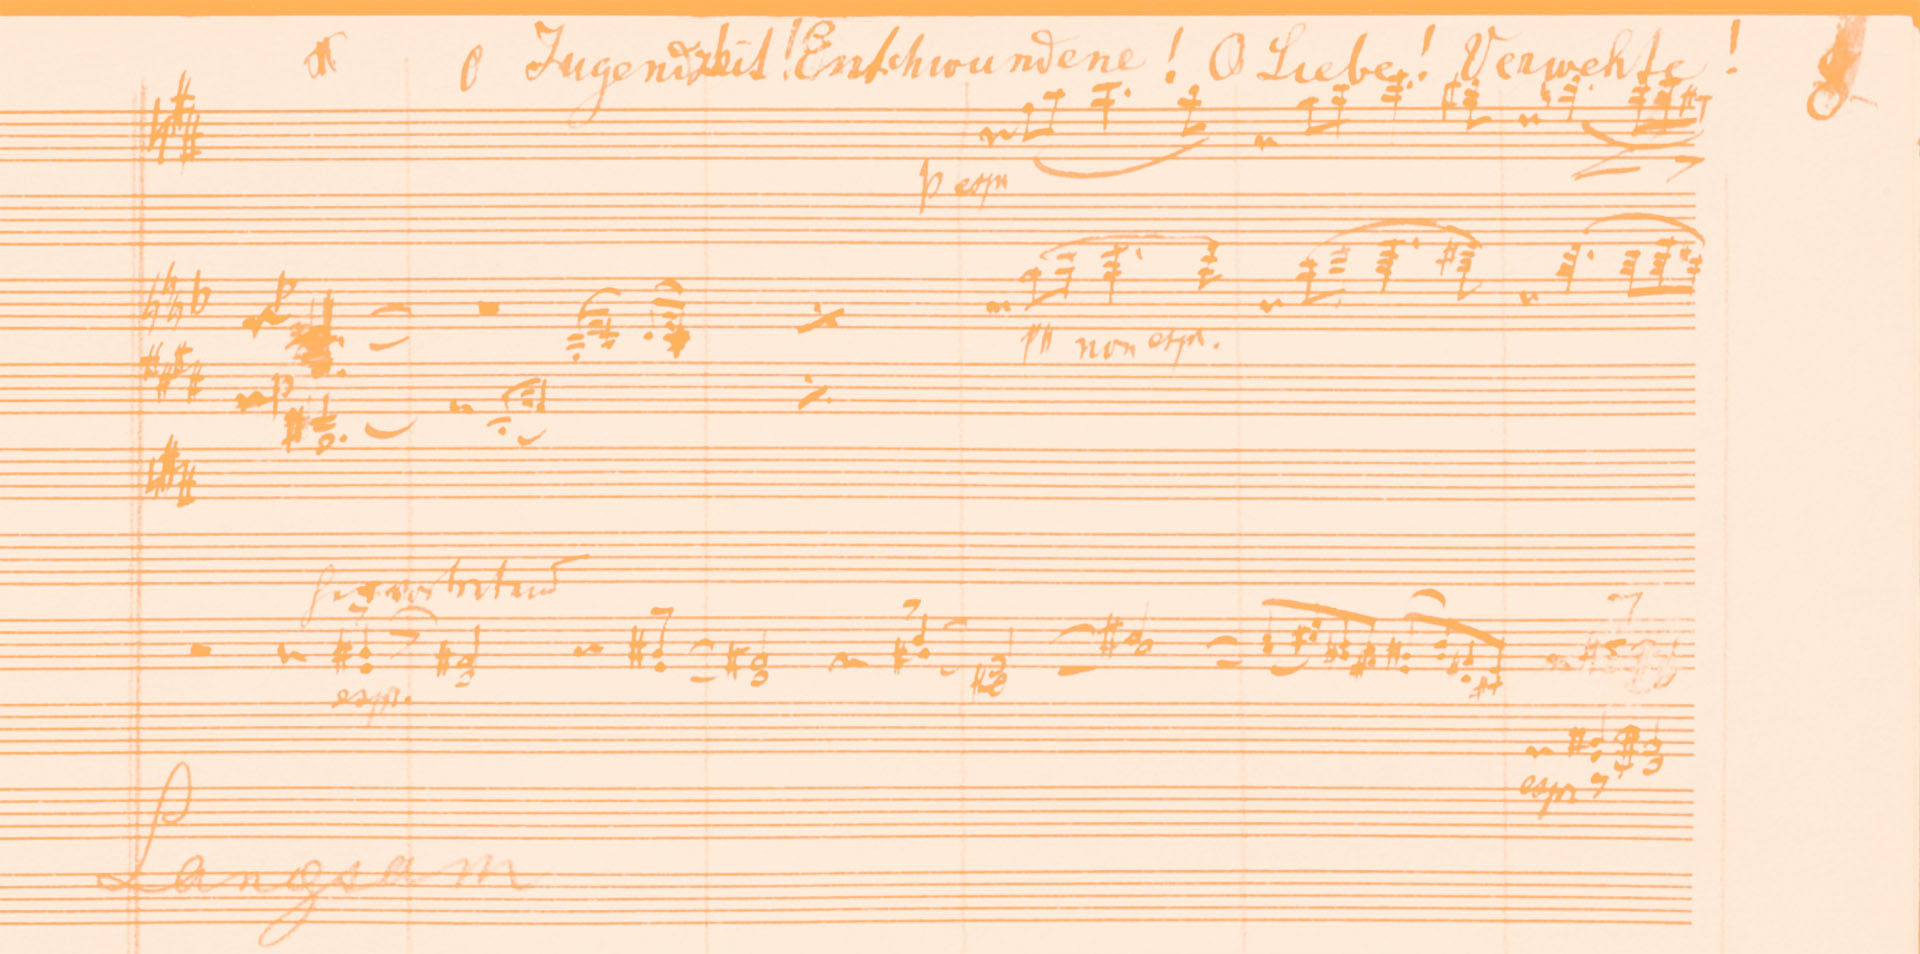 O Jugendzeit! Entschwundene! O Liebe! Verwehte!
p espr
p
pp non espr.
p
hervortretend
espr.
espr
Langsam